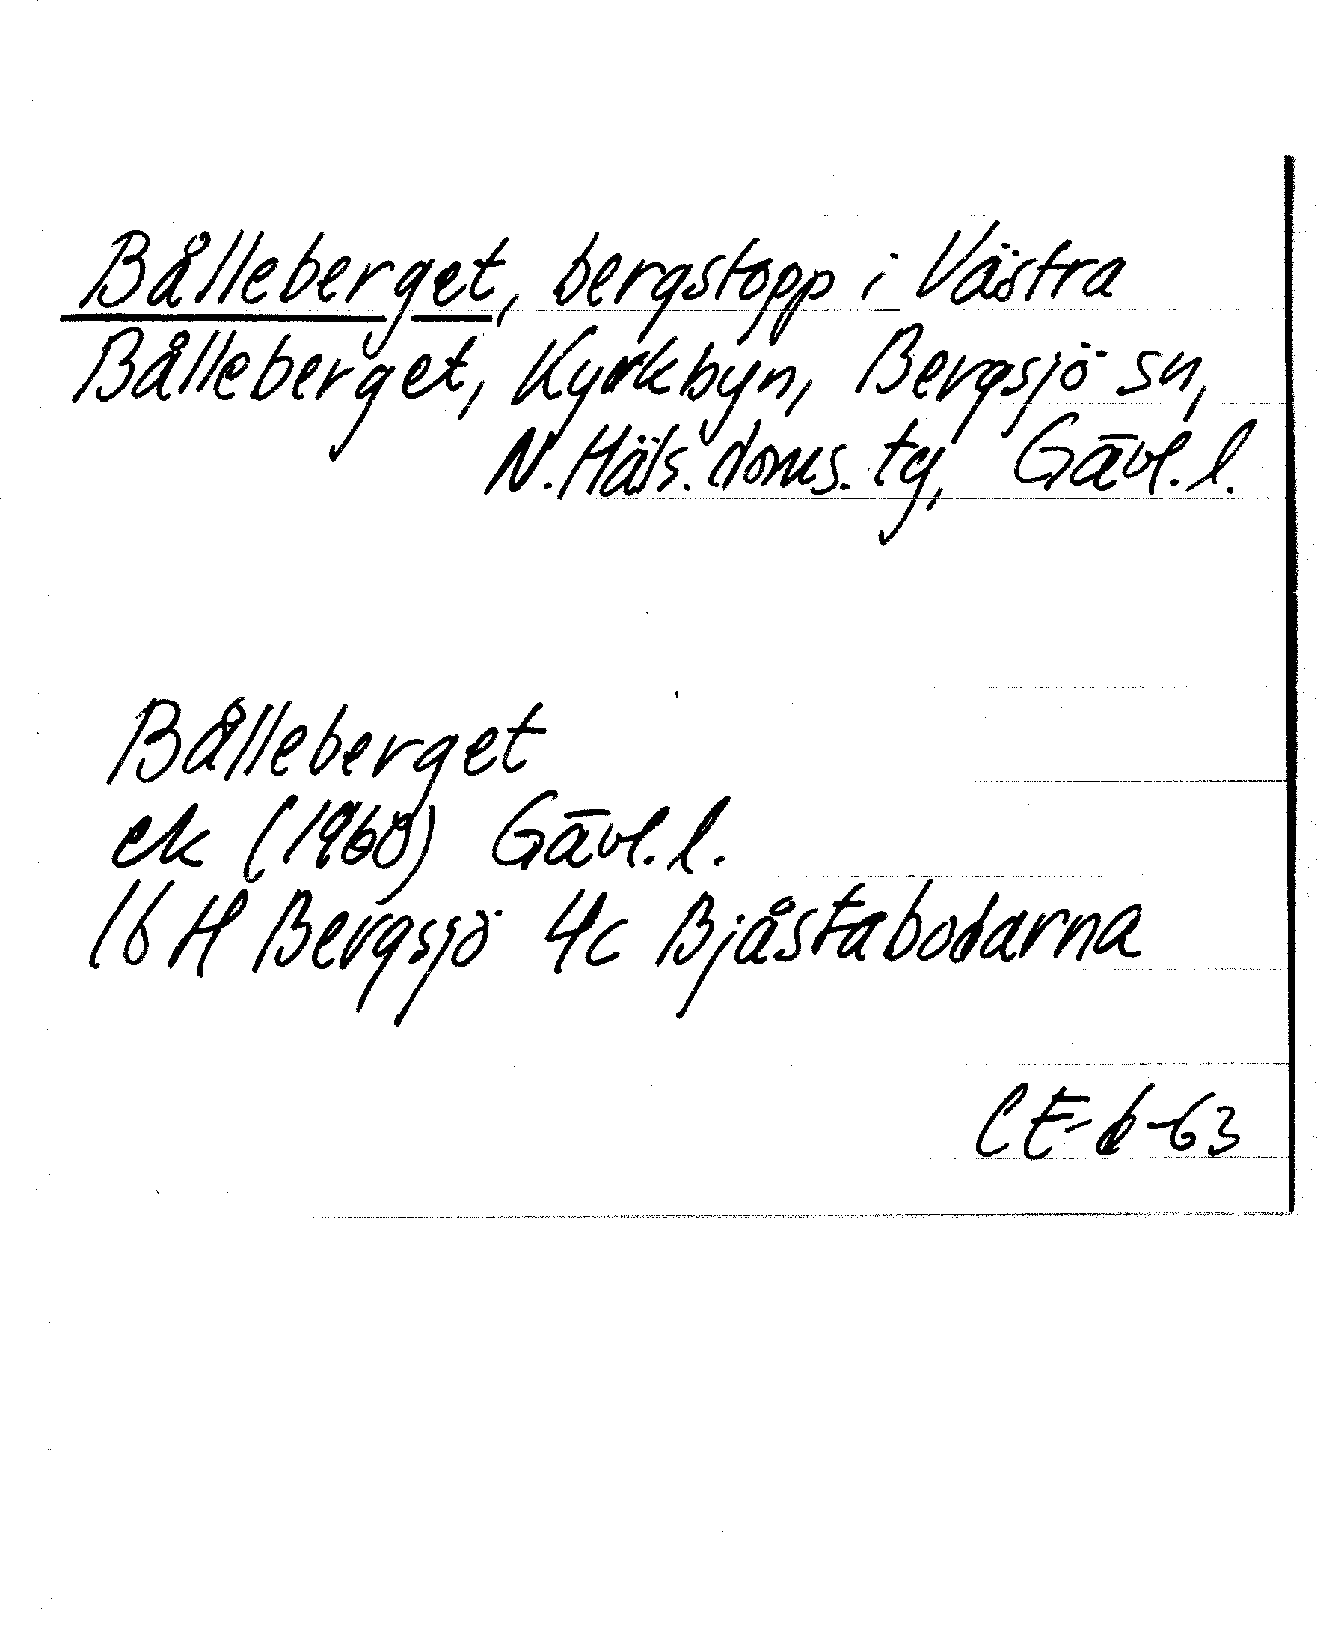 Bålleberget, bergstopp i Västra
Bålleberget, Kyrkbyn, Bergsjö sn,
N. Häls. doms. tg, Gävl. l.
Bålleberget
ek (1960) Gävl. l.
16 H Bergsjö 4c Bjåstabodarna
CE-6-63